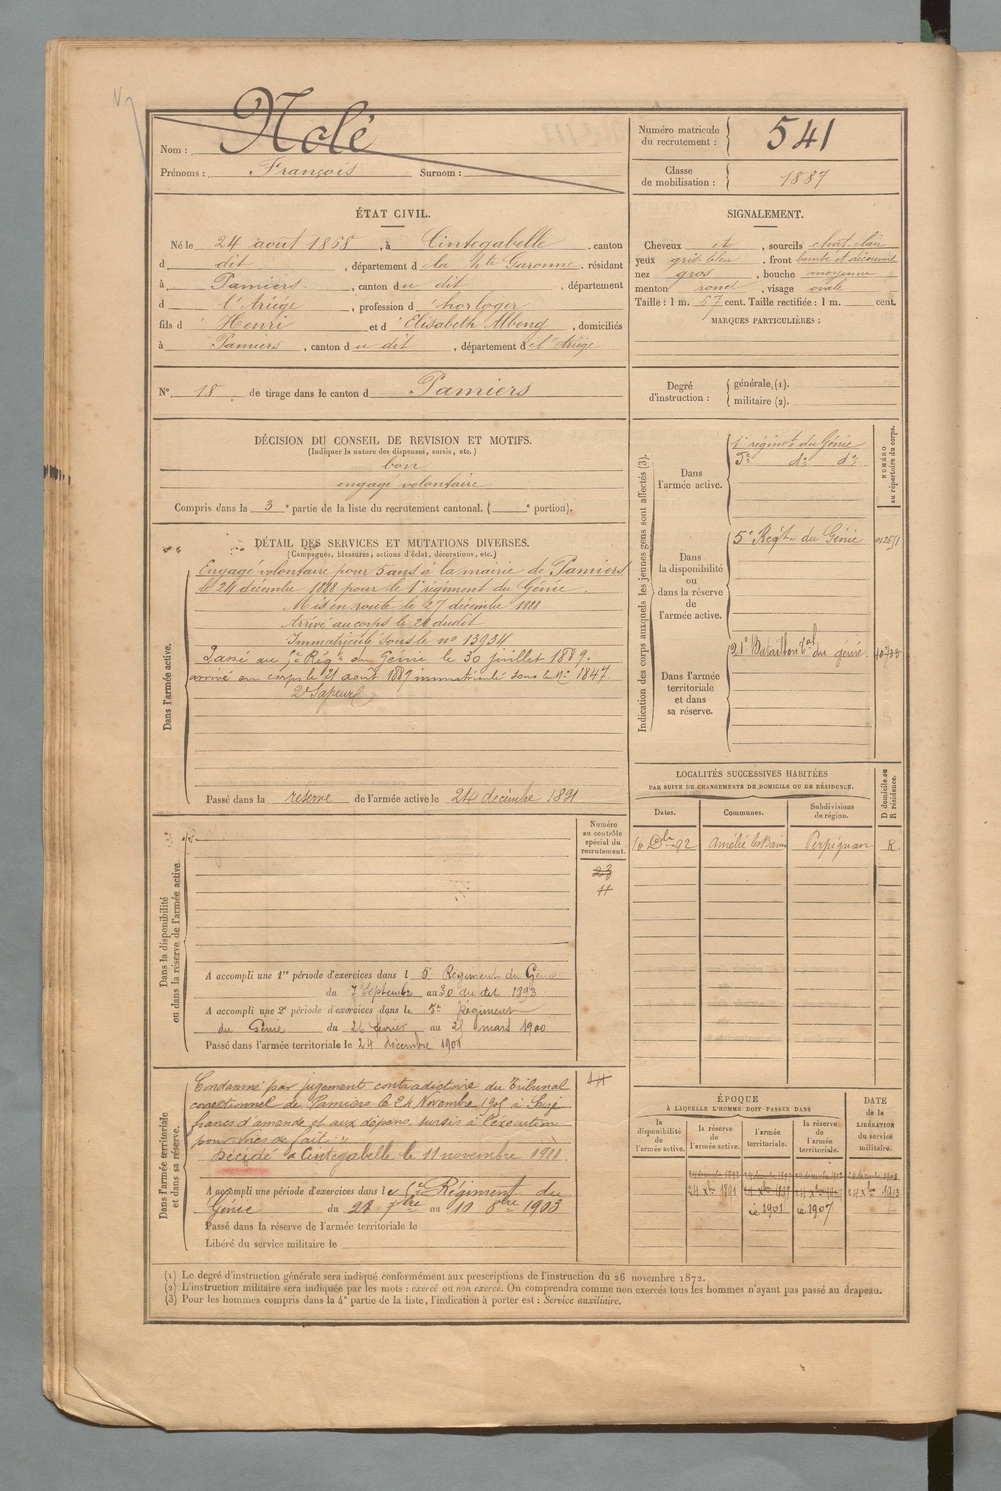 Nom : Nolé
Prénoms : François Surnom :
Numéro matricule du recrutement : 541
Classe de mobilisation : 1887
ÉTAT CIVIL.
Né le 24 août 1868, à Cintegabelle, canton
d dit, département d la Hte Garonne, résidant
à Pamiers, canton du dit, département
d l'Ariége, profession d' horloger
fils d' Henri et d' Elisabeth, domiciliés
à Pamiers, canton du dit, département d l'Ariége
SIGNALEMENT.
Cheveux et, sourcils chat. clair
yeux gris bleu, front bombé et découvert
nez gros, bouche moyenne
menton rond, visage ovale
Taille : 1 m. 67 cent. Taille rectifiée : 1 m. cent.
MARQUES PARTICULIÈRES :
N° 18 de tirage dans le canton d Pamiers
Degré d'instruction : générale, (1). militaire (2).
DÉCISION DU CONSEIL DE REVISION ET MOTIFS.
(Indiquer la nature des dispenses, sursis, etc.)
bon
engagé volontaire
Compris dans la 3e partie de la liste du recrutement cantonal. ( e portion).
DÉTAIL DES SERVICES ET MUTATIONS DIVERSES.
(Campagnes, blessures, actions d'éclat, décorations, etc.)
Dans l'armée active.
Engagé volontaire pour 5 ans à la mairie de Pamiers
le 24 décembre 1888 pour le 1er régiment du Génie.
Mis en route le 27 décembre 1888
Arrivé au corps le 28 dudit
Immatriculé sous le no 13934
Passé au 5e Régt du Génie le 30 juillet 1889.
arrivé au corps le 21 août 1889 immatriculé sous le No 1847.
2e Sapeur
Passé dans la réserve de l'armée active le 24 décembre 1891
Indication des corps auxquels les jeunes gens sont affectés (3).
NUMÉRO au répertoire du corps.
Dans l'armée active.
1er régiment du Génie
5e do do
Dans la disponibilité ou dans la réserve de l'armée active.
5e Régt du Génie
Dans l'armée territoriale et dans sa réserve.
21e Bataillon tal du génie
LOCALITÉS SUCCESSIVES HABITÉES
PAR SUITE DE CHANGEMENTS DE DOMICILE OU DE RÉSIDENCE.
Dates. Communes. Subdivisions de région. D domicile ou R résidence.
16 Xbre 92 Amélie les Bains Perpignan R.
Dans la disponibilité ou dans la réserve de l'armée active
Numéro au contrôle spécial du recrutement.
23
A accompli une 1re période d'exercices dans l 5e Régiment du Génie
du 7 Septembre au 30 du dit 1893
A accompli une 2e période d'exercices dans le 5e Régiment
du Génie du 26 février au 25 mars 1900
Passé dans l'armée territoriale le 24 décembre 1901
Dans l'armée territoriale et dans sa réserve.
Condamné par jugement contradictoire du Tribunal
correctionnel de Pamiers le 24 Novembre 1905 à Seize
francs d'amende et aux dépens, sursis à l'exécution
pour voies de faits
Décédé à Cintegabelle le 11 novembre 1911.
A accompli une période d'exercices dans le 5e Régiment du
Génie du 28 7bre au 10 8bre 1903
Passé dans la réserve de l'armée territoriale le
Libéré du service militaire le
ÉPOQUE
À LAQUELLE L'HOMME DOIT PASSER DANS
la disponibilité de l'armée active. la réserve de l'armée active. l'armée territoriale. la réserve de l'armée territoriale. DATE de la LIBÉRATION du service militaire.
24 Xbre 1891 24 Xbre 1913
1901 1907
(1) Le degré d'instruction générale sera indiqué conformément aux prescriptions de l'instruction du 26 novembre 1872.
(2) L'instruction militaire sera indiquée par les mots : exercé ou non exercé. On comprendra comme non exercés tous les hommes n'ayant pas passé au drapeau.
(3) Pour les hommes compris dans la 4e partie de la liste, l'indication à porter est : Service auxiliaire.